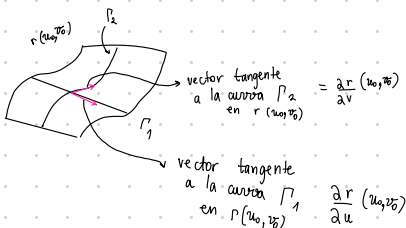 Γ₂
r(u₀,v₀)
vector tangente
a la curva Γ₂
en r(u₀,v₀)
= ∂r/∂v (u₀,v₀)
Γ₁
vector tangente
a la curva Γ₁
en r(u₀,v₀)
∂r/∂u (u₀,v₀)